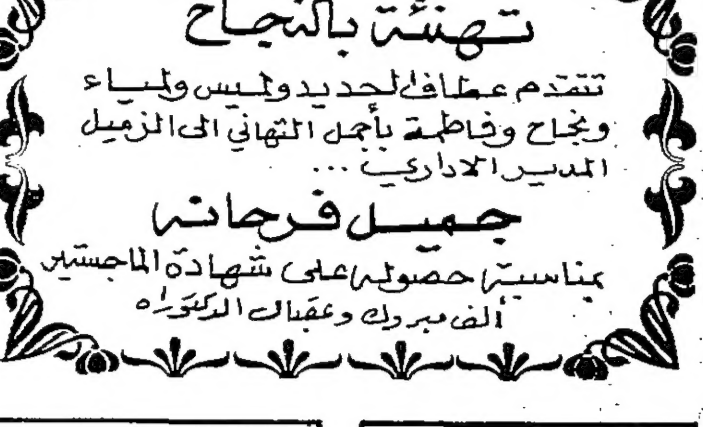 تهنئة بالنجاح
تتقدم عطاف الحديد ولميس ولمياء
ونجاح وفاطمة بأجمل التهاني الى الزميل
المدير الاداري ...
جميل فرحانه
بمناسبة حصوله على شهادة الماجستير
ألف مبروك وعقبال الدكتوراه